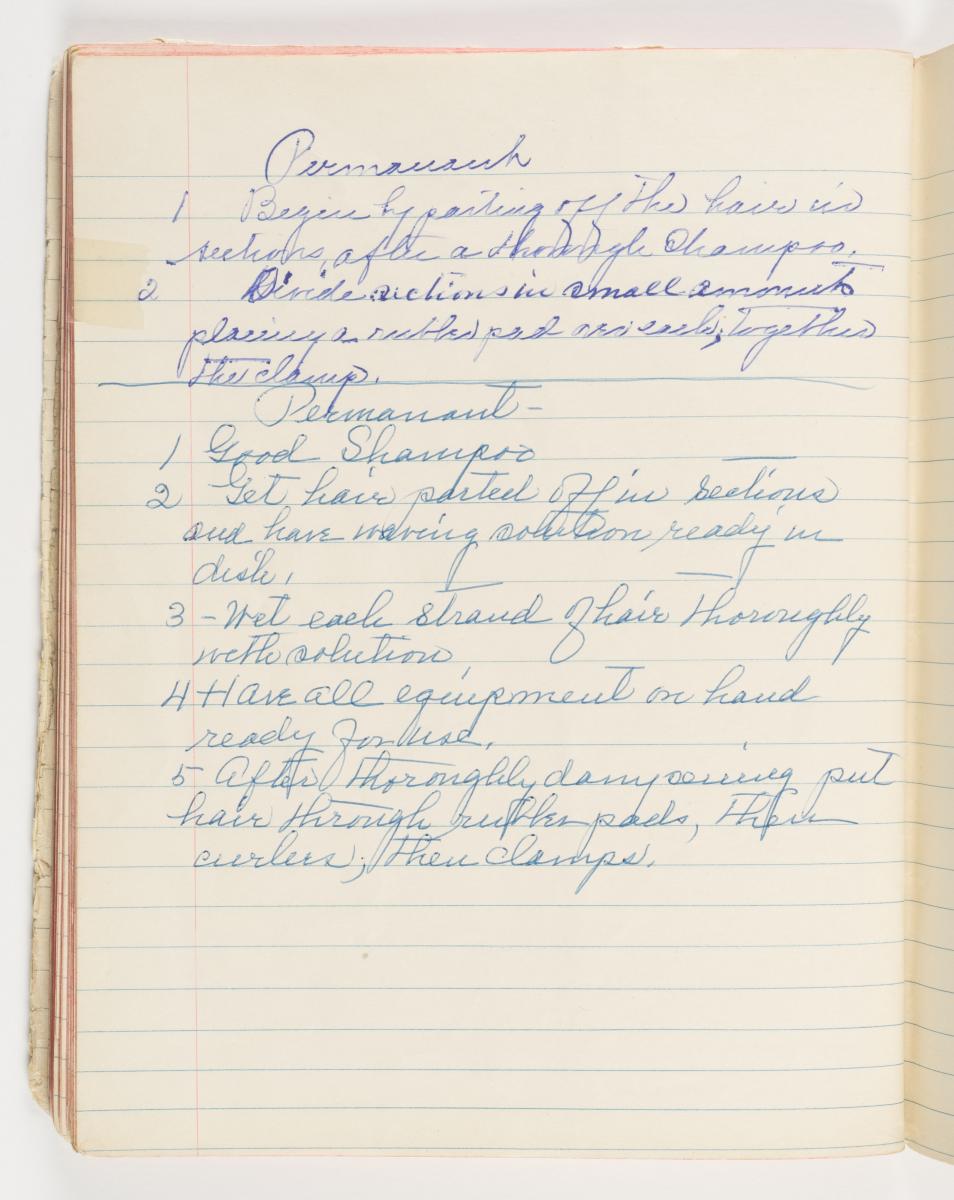 Permanant
1 Begin by parting off the hair in
sections, after a thorough Shampoo.
2 Divide sections in small amounts
placing a rubber pad on each; together
the clamp.
Permanant -
1 Good Shampoo
2 Get hair parted off in sections
and have waving solution ready in
dish.
3 - Wet each strand of hair thoroughly
with solution
4 Have all equipment on hand
ready for use.
5 After thoroughly put
hair through rubber pads, then
curlers; then clamps.